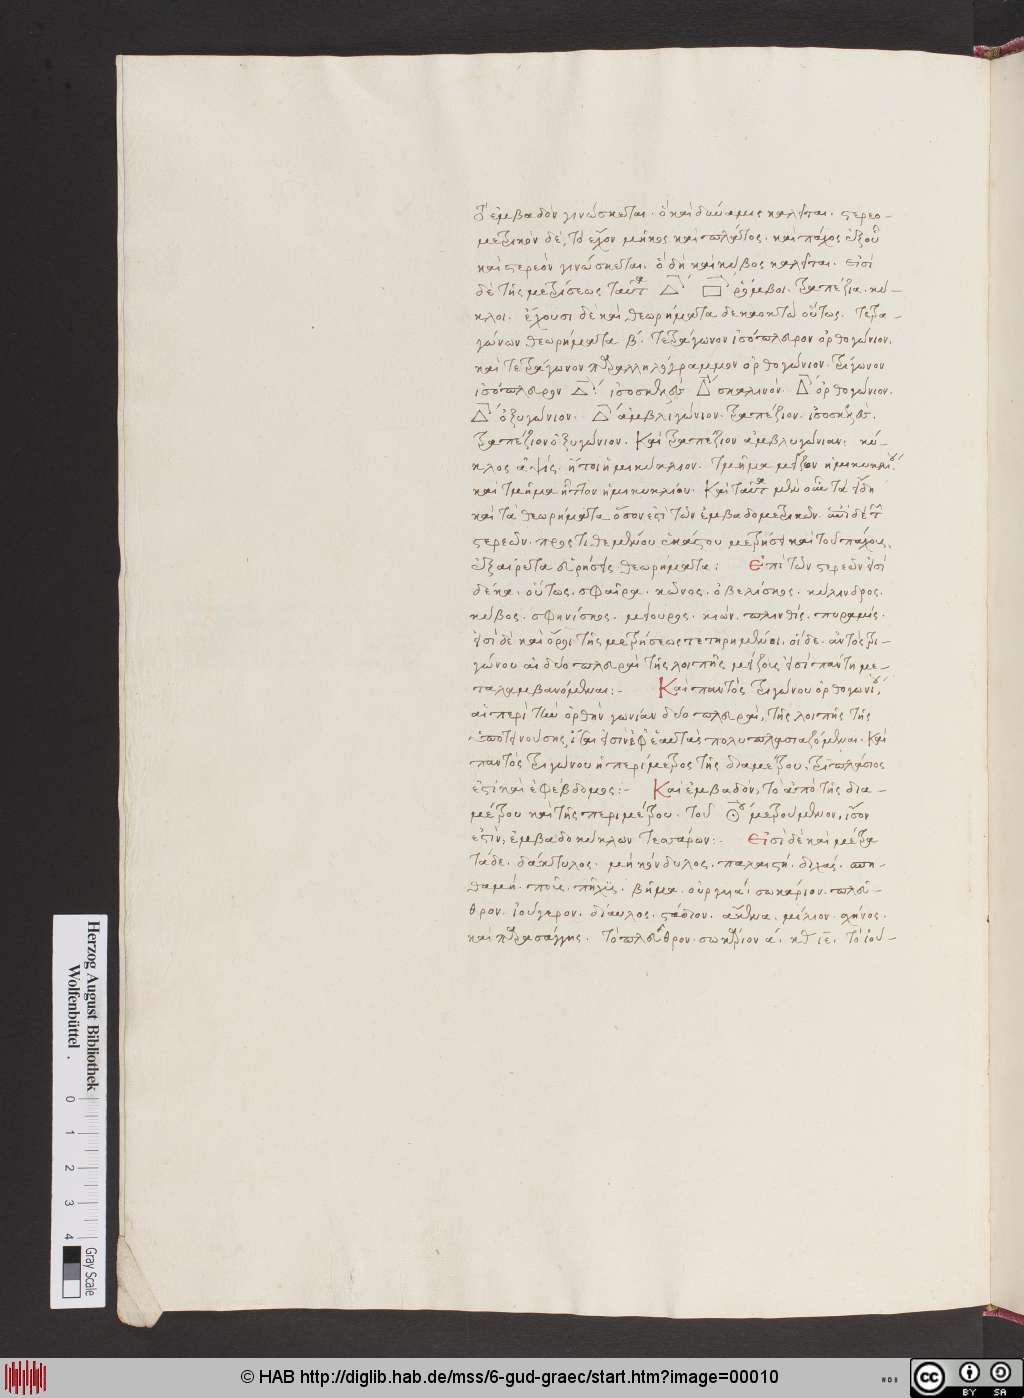 ὃ ἐμβαδὸν γινώσκεται. ὃ καὶ δύναμις καλεῖται. στερεο-
μετρικὸν δὲ, τὸ ἔχον μῆκος καὶ πλάτος. καὶ πάχος ἐξ οὗ
καὶ στερεὸν γινώσκεται. ὃ δὴ καὶ κύβος καλεῖται. εἰσὶ
δὲ τῆς μετρήσεως ταῦτα Δ´ □´ ῥόμβοι. τραπέζια. κύ-
κλοι. ἔχουσι δὲ καὶ θεωρήματα δεκαοκτὼ οὕτως. τετρα-
γώνων θεωρήματα β´. τετράγωνον ἰσόπλευρον ὀρθογώνιον.
καὶ τετράγωνον παραλληλόγραμμον ὀρθογώνιον. τρίγωνον
ἰσόπλευρον Δ´. ἰσοσκελὲς Δ´ σκαληνόν. Δ´ ὀρθογώνιον.
Δ´ ὀξυγώνιον. Δ´ ἀμβλιγώνιον. τραπέζιον. ἰσοσκελὲς.
τραπέζιον ὀξυγώνιον. Καὶ τραπέζιον ἀμβλυγώνιον. κύ-
κλος ἁψίς. ἤτοι ἡμικύκλιον. τμῆμα μεῖζον ἡμικυκλίου.
καὶ τμῆμα ἧττον ἡμικυκλίου. Καὶ ταῦτα μὲν οὖν τὰ εἴδη
καὶ τὰ θεωρήματα ὅσον ἐστὶ τῶν ἐμβαδομετρικῶν. ἐπὶ δὲ τῶν
στερεῶν. προστιθεμένου ἑκάστου μετρήσει καὶ τοῦ πάχους,
ἐξαίρετα εὑρήσεις θεωρήματα: Ἐπὶ τῶν στερεῶν εἰσὶ
δέκα. οὕτως. σφαῖρα. κῶνος. ὀβελίσκος. κύλινδρος.
κύβος. σφηνίσκος. μείουρος. κίων. πλινθίς. πυραμίς.
εἰσὶ δὲ καὶ ὅροι τῆς μετρήσεως τετηρημένοι. οἵδε. παντὸς τρι-
γώνου αἱ δύο πλευραὶ τῆς λοιπῆς μείζους εἰσὶ πάντη με-
ταλαμβανόμεναι:- Καὶ παντὸς τριγώνου ὀρθογωνίου,
αἱ περὶ τὴν ὀρθὴν γωνίαν δύο πλευραὶ, τῆς λοιπῆς τῆς
ὑποτεινούσης, ἴσαι εἰσὶν ἐφ᾽ ἑαυτὰς πολυπλασιαζόμεναι. Καὶ
παντὸς τριγώνου ἡ περίμετρος τῆς διαμέτρου, τριπλάσιος
ἐστὶ καὶ ἐφέβδομος:- Καὶ ἐμβαδὸν, τὸ ἀπὸ τῆς δια-
μέτρου καὶ τῆς περιμέτρου. τοῦ ☉ου μετρουμένου, ἴσον
ἐστὶν, ἐμβαδοκύκλων τεσσάρων:- Εἰσὶ δὲ καὶ μέτρα
τάδε. δάκτυλος. μὴ κόνδυλος. παλαιστή. διχάς. σπι-
θαμή. ποῦς. πῆχυς. βῆμα. οὐργυιά. σωκάριον. πλέ-
θρον. ἰούγερον. δίαυλος. στάδιον. ἄκενα. μίλιον. σχῆνος.
καὶ παρασάγγης. τὸ πλέθρον. σωκάριον α´. ιε. τὸ ἰού-
Herzog August Bibliothek
Wolfenbüttel .
0 1 2 3 4
Gray Scale
© HAB http://diglib.hab.de/mss/6-gud-graec/start.htm?image=00010
cc BY SA